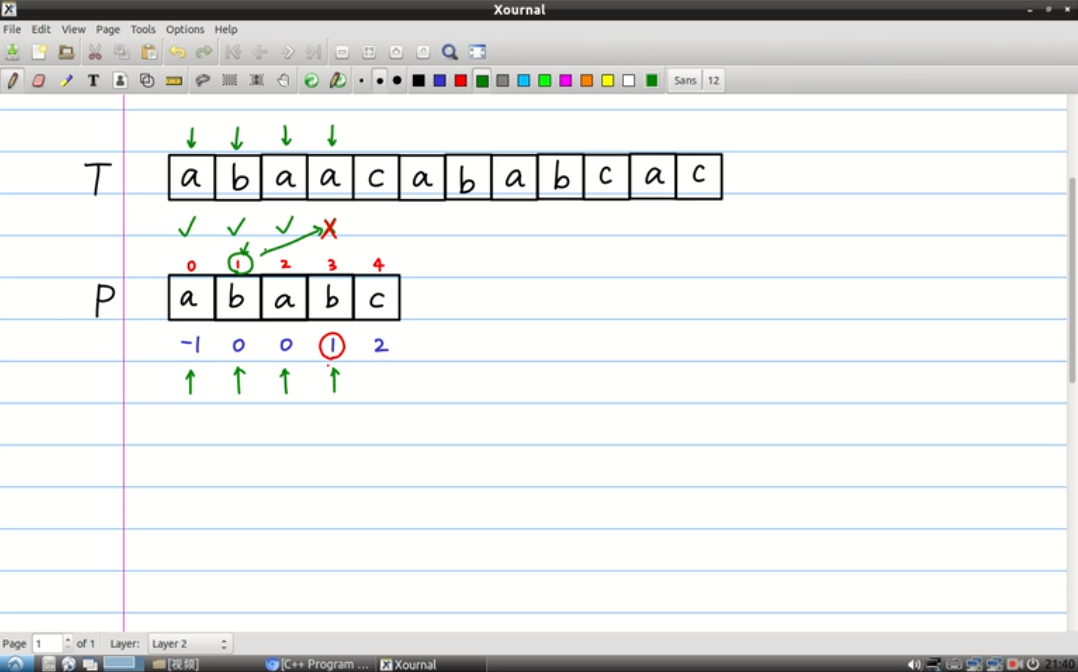 Xournal
File Edit View Page Tools Options Help
T Sans 12
T a b a a c a b a b c a c
0 1 2 3 4
P a b a b c
-1 0 0 1 2
Page 1 of 1 Layer: Layer 2
[视频] [C++ Program ... Xournal 21:40